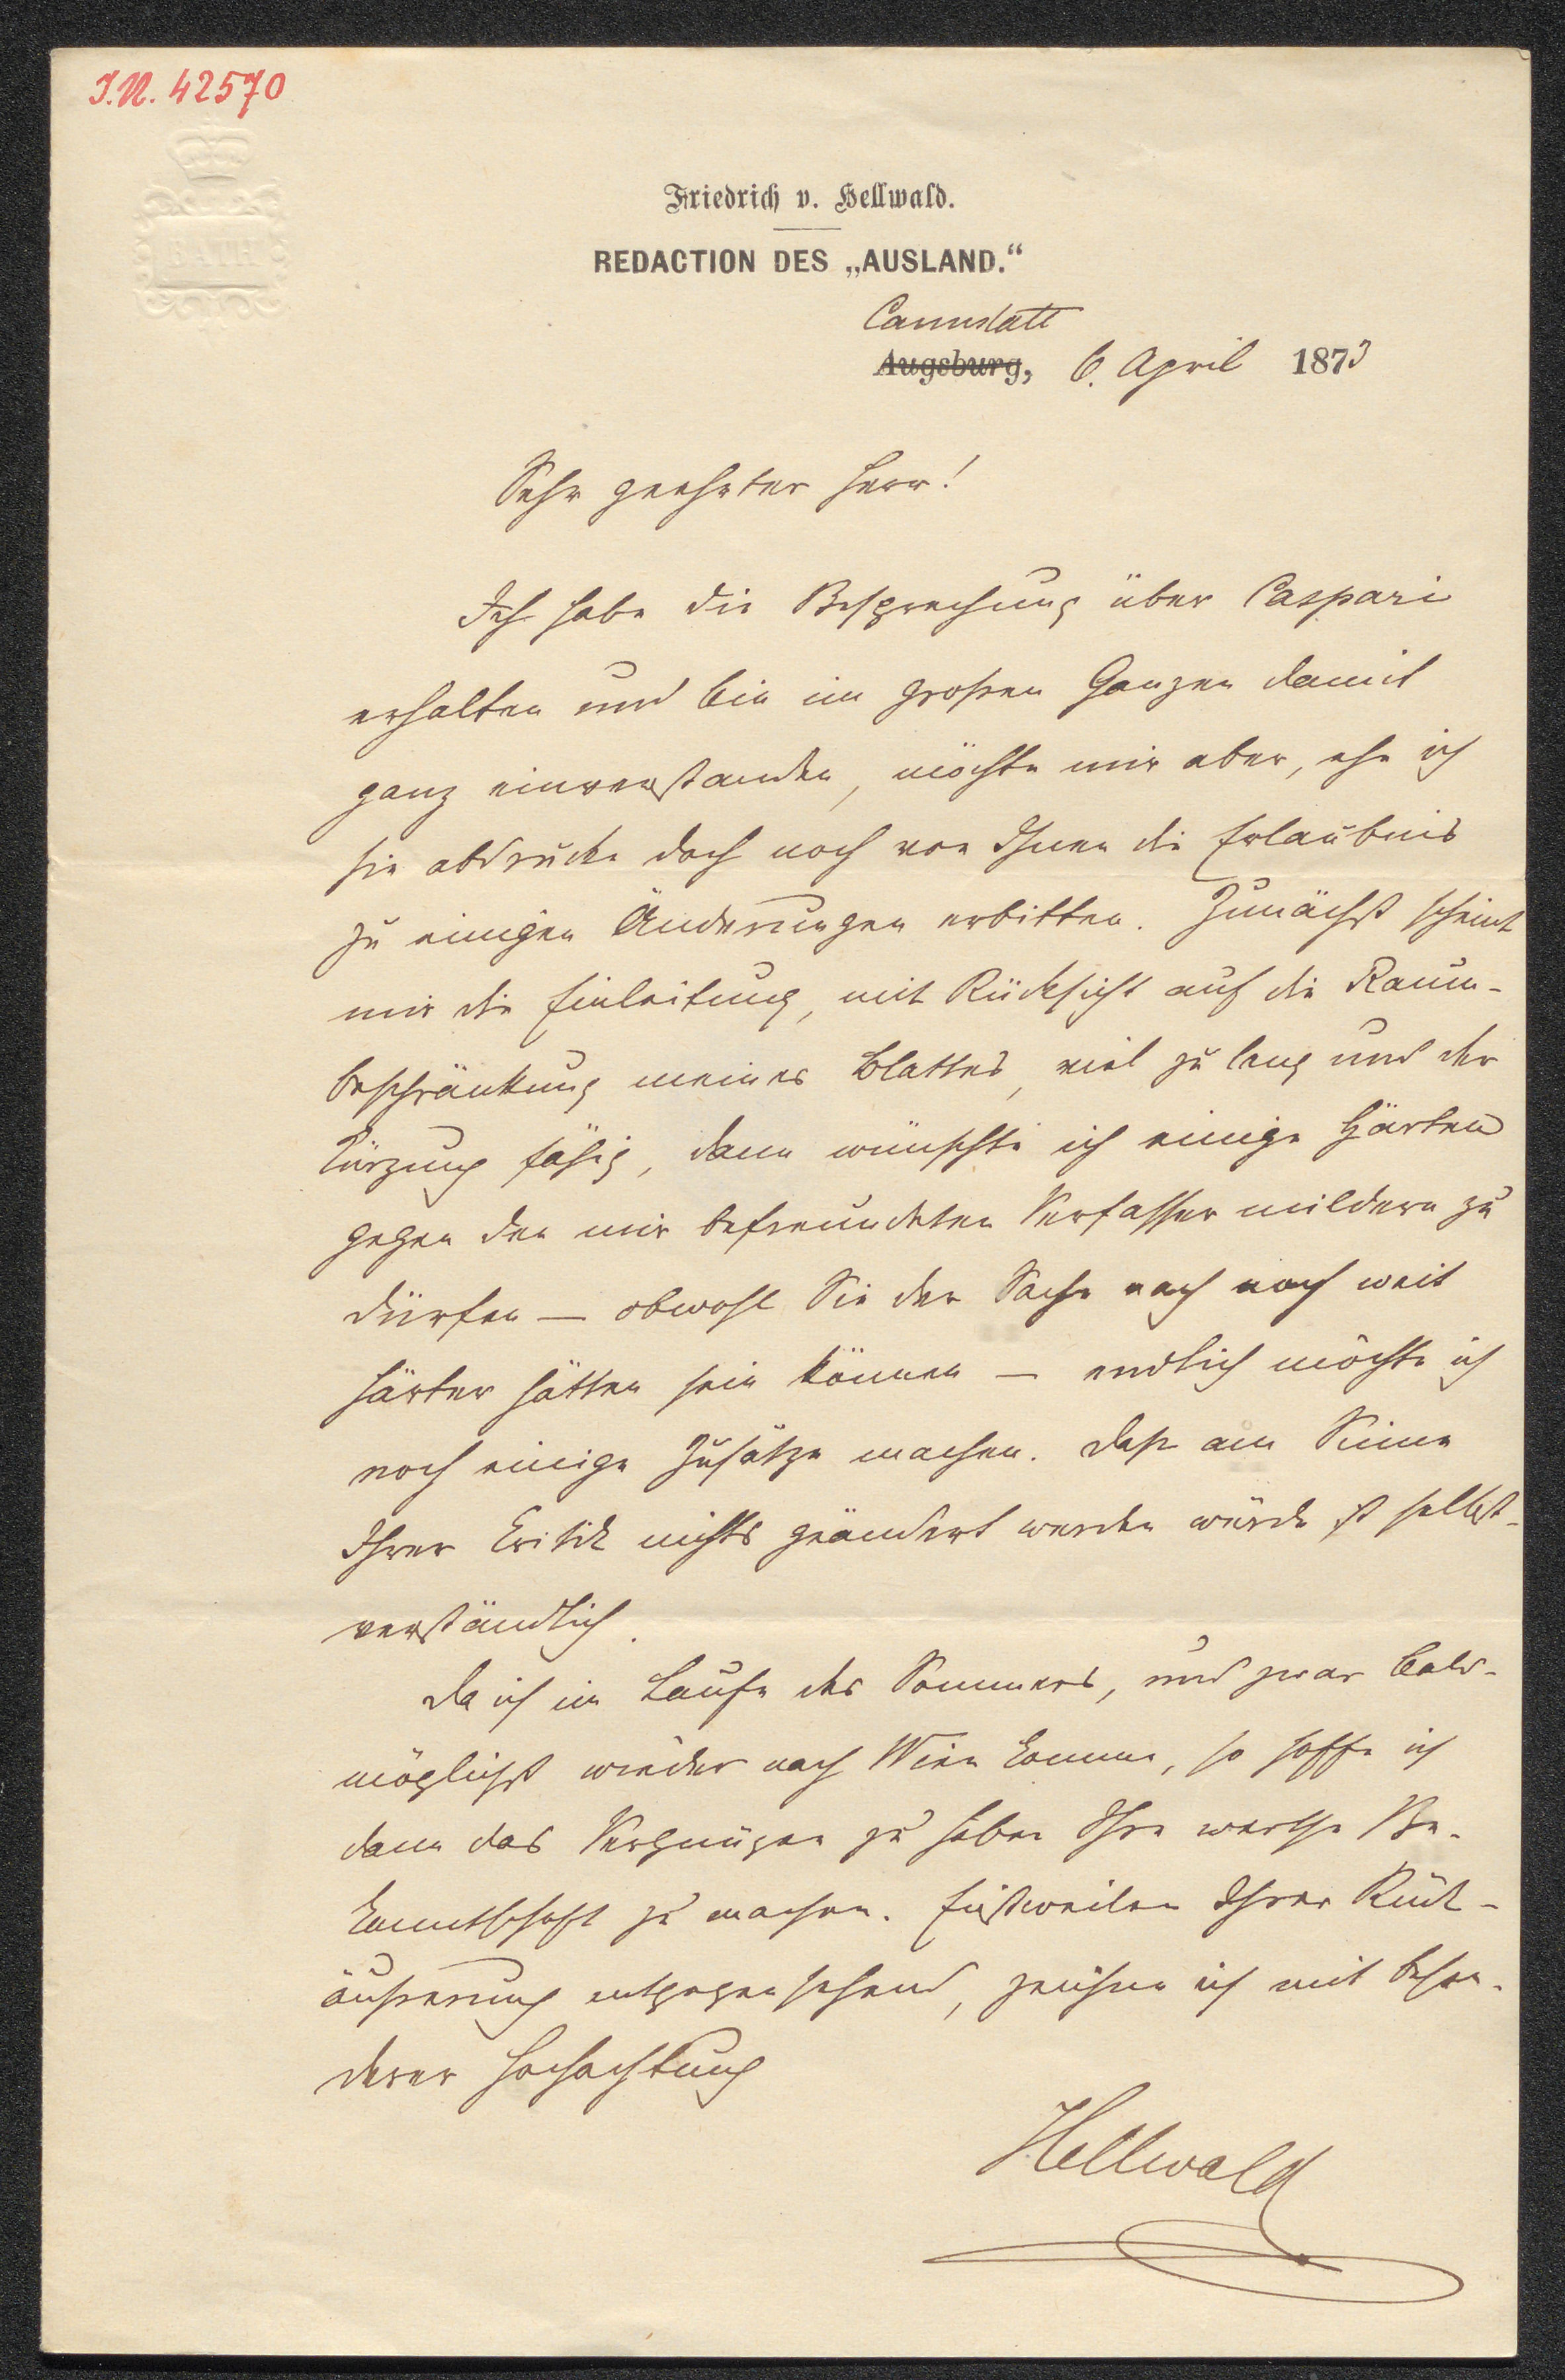 I.N. 42570
BATH
Friedrich v. Hellwald.
REDACTION DES „AUSLAND.“
Cannstatt
Augsburg, 6. April 1873
Sehr geehrter Herr!
Ich habe die Besprechung über Caspari
erhalten und bin im großen Ganzen damit
ganz einverstanden, möchte mir aber, ehe ich
sie abdrucke doch noch von Ihnen die Erlaubnis
zu einigen Änderungen erbitten. Zunächst scheint
mir die Einleitung, mit Rücksicht auf die Raum-
beschränkung meines Blattes, viel zu lang und der
Kürzung fähig, dann wünschte ich einige Härten
gegen den mir befreundeten Verfasser mildern zu
dürfen — obwohl Sie der Sache nach noch weit
härter hätten sein können — endlich möchte ich
noch einige Zusätze machen. Daß am Sinne
Ihrer Kritik nichts geändert werden würde ist selbst-
verständlich.
Da ich im Laufe des Sommers, und zwar bald-
möglichst wieder nach Wien komme, so hoffe ich
dann das Vergnügen zu haben Ihre werthe Be-
kanntschaft zu machen. Einstweilen Ihrer Rück-
äußerung entgegensehend, zeichne ich mit beson-
derer Hochachtung
Hellwald